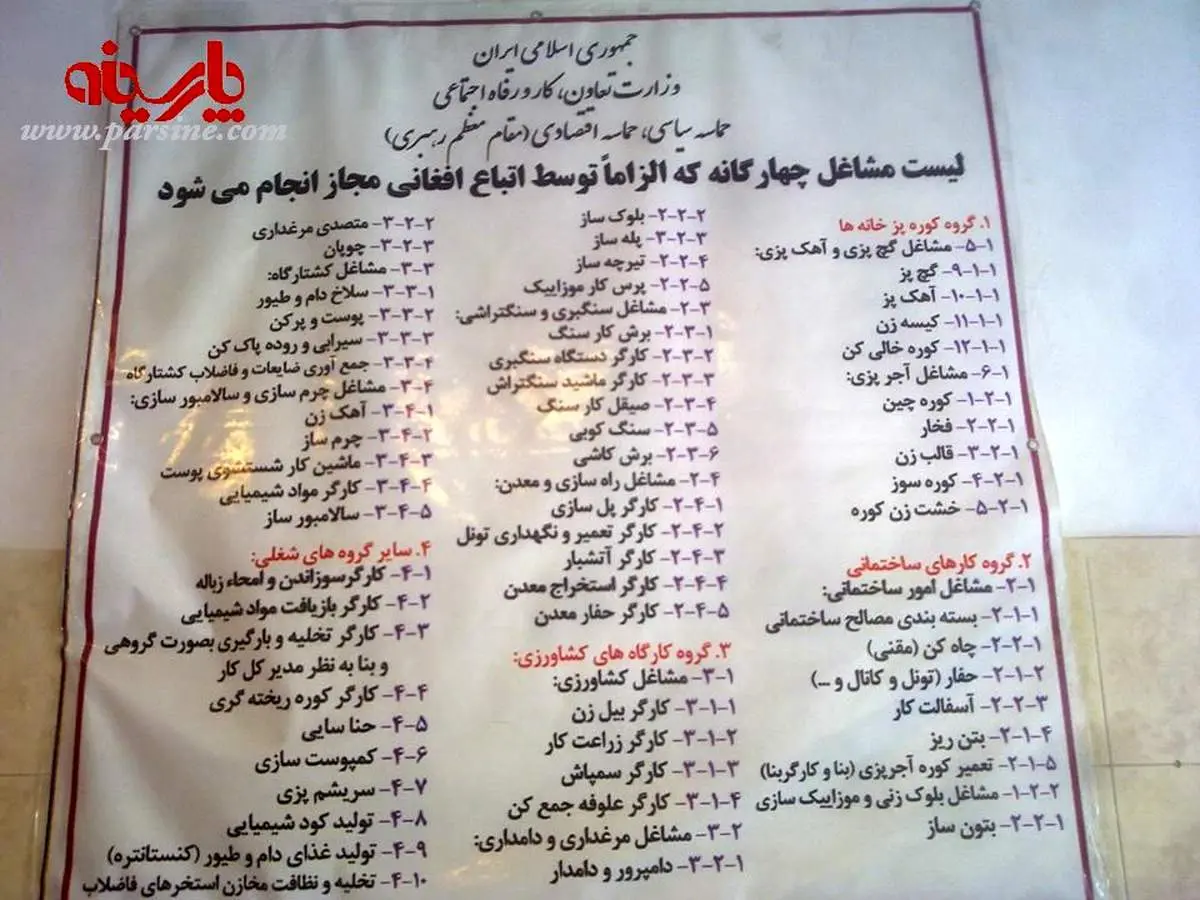 پارسینه
www.parsine.com
جمهوری اسلامی ایران
وزارت تعاون، کار و رفاه اجتماعی
حماسه سیاسی، حماسه اقتصادی (مقام معظم رهبری)
لیست مشاغل چهارگانه که الزاماً توسط اتباع افغانی مجاز انجام می شود
۱. گروه کوره پز خانه ها
۱-۵- مشاغل گچ پزی و آهک پزی:
۱-۱-۹- گچ پز
۱-۱-۱۰- آهک پز
۱-۱-۱۱- کیسه زن
۱-۱-۱۲- کوره خالی کن
۱-۶- مشاغل آجر پزی:
۱-۲-۱- کوره چین
۱-۲-۲- فخار
۱-۲-۳- قالب زن
۱-۲-۴- کوره سوز
۱-۲-۵- خشت زن کوره
۲. گروه کارهای ساختمانی
۲-۱- مشاغل امور ساختمانی:
۲-۱-۱- بسته بندی مصالح ساختمانی
۲-۲-۱- چاه کن (مقنی)
۲-۱-۲- حفار (تونل و کانال و ...)
۲-۲-۳- آسفالت کار
۲-۱-۴- بتن ریز
۲-۱-۵- تعمیر کوره آجرپزی (بنا و کارگربنا)
۱-۲-۲- مشاغل بلوک زنی و موزاییک سازی
۲-۲-۱- بتون ساز
۲-۲-۲- بلوک ساز
۲-۲-۳- پله ساز
۲-۲-۴- تیرچه ساز
۲-۲-۵- پرس کار موزاییک
۲-۳- مشاغل سنگبری و سنگتراشی:
۲-۳-۱- برش کار سنگ
۲-۳-۲- کارگر دستگاه سنگبری
۲-۳-۳- کارگر ماشید سنگتراش
۲-۳-۴- صیقل کار سنگ
۲-۳-۵- سنگ کوبی
۲-۳-۶- برش کاشی
۲-۴- مشاغل راه سازی و معدن:
۲-۴-۱- کارگر پل سازی
۲-۴-۲- کارگر تعمیر و نگهداری تونل
۲-۴-۳- کارگر آتشبار
۲-۴-۴- کارگر استخراج معدن
۲-۴-۵- کارگر حفار معدن
۳. گروه کارگاه های کشاورزی:
۳-۱- مشاغل کشاورزی:
۳-۱-۱- کارگر بیل زن
۳-۱-۲- کارگر زراعت کار
۳-۱-۳- کارگر سمپاش
۳-۱-۴- کارگر علوفه جمع کن
۳-۲- مشاغل مرغداری و دامداری:
۳-۲-۱- دامپرور و دامدار
۳-۲-۲- متصدی مرغداری
۳-۲-۳- چوپان
۳-۳- مشاغل کشتارگاه:
۳-۳-۱- سلاخ دام و طیور
۳-۳-۲- پوست و پرکن
۳-۳-۳- سیرابی و روده پاک کن
۳-۳-۴- جمع آوری ضایعات و فاضلاب کشتارگاه
۳-۴- مشاغل چرم سازی و سالامبور سازی:
۳-۴-۱- آهک زن
۳-۴-۲- چرم ساز
۳-۴-۳- ماشین کار شستشوی پوست
۳-۴-۴- کارگر مواد شیمیایی
۳-۴-۵- سالامبور ساز
۴. سایر گروه های شغلی:
۴-۱- کارگرسوزاندن و امحاء زباله
۴-۲- کارگر بازیافت مواد شیمیایی
۴-۳- کارگر تخلیه و بارگیری بصورت گروهی
و بنا به نظر مدیر کل کار
۴-۴- کارگر کوره ریخته گری
۴-۵- حنا سایی
۴-۶- کمپوست سازی
۴-۷- سریشم پزی
۴-۸- تولید کود شیمیایی
۴-۹- تولید غذای دام و طیور (کنستانتره)
۴-۱۰- تخلیه و نظافت مخازن استخرهای فاضلاب